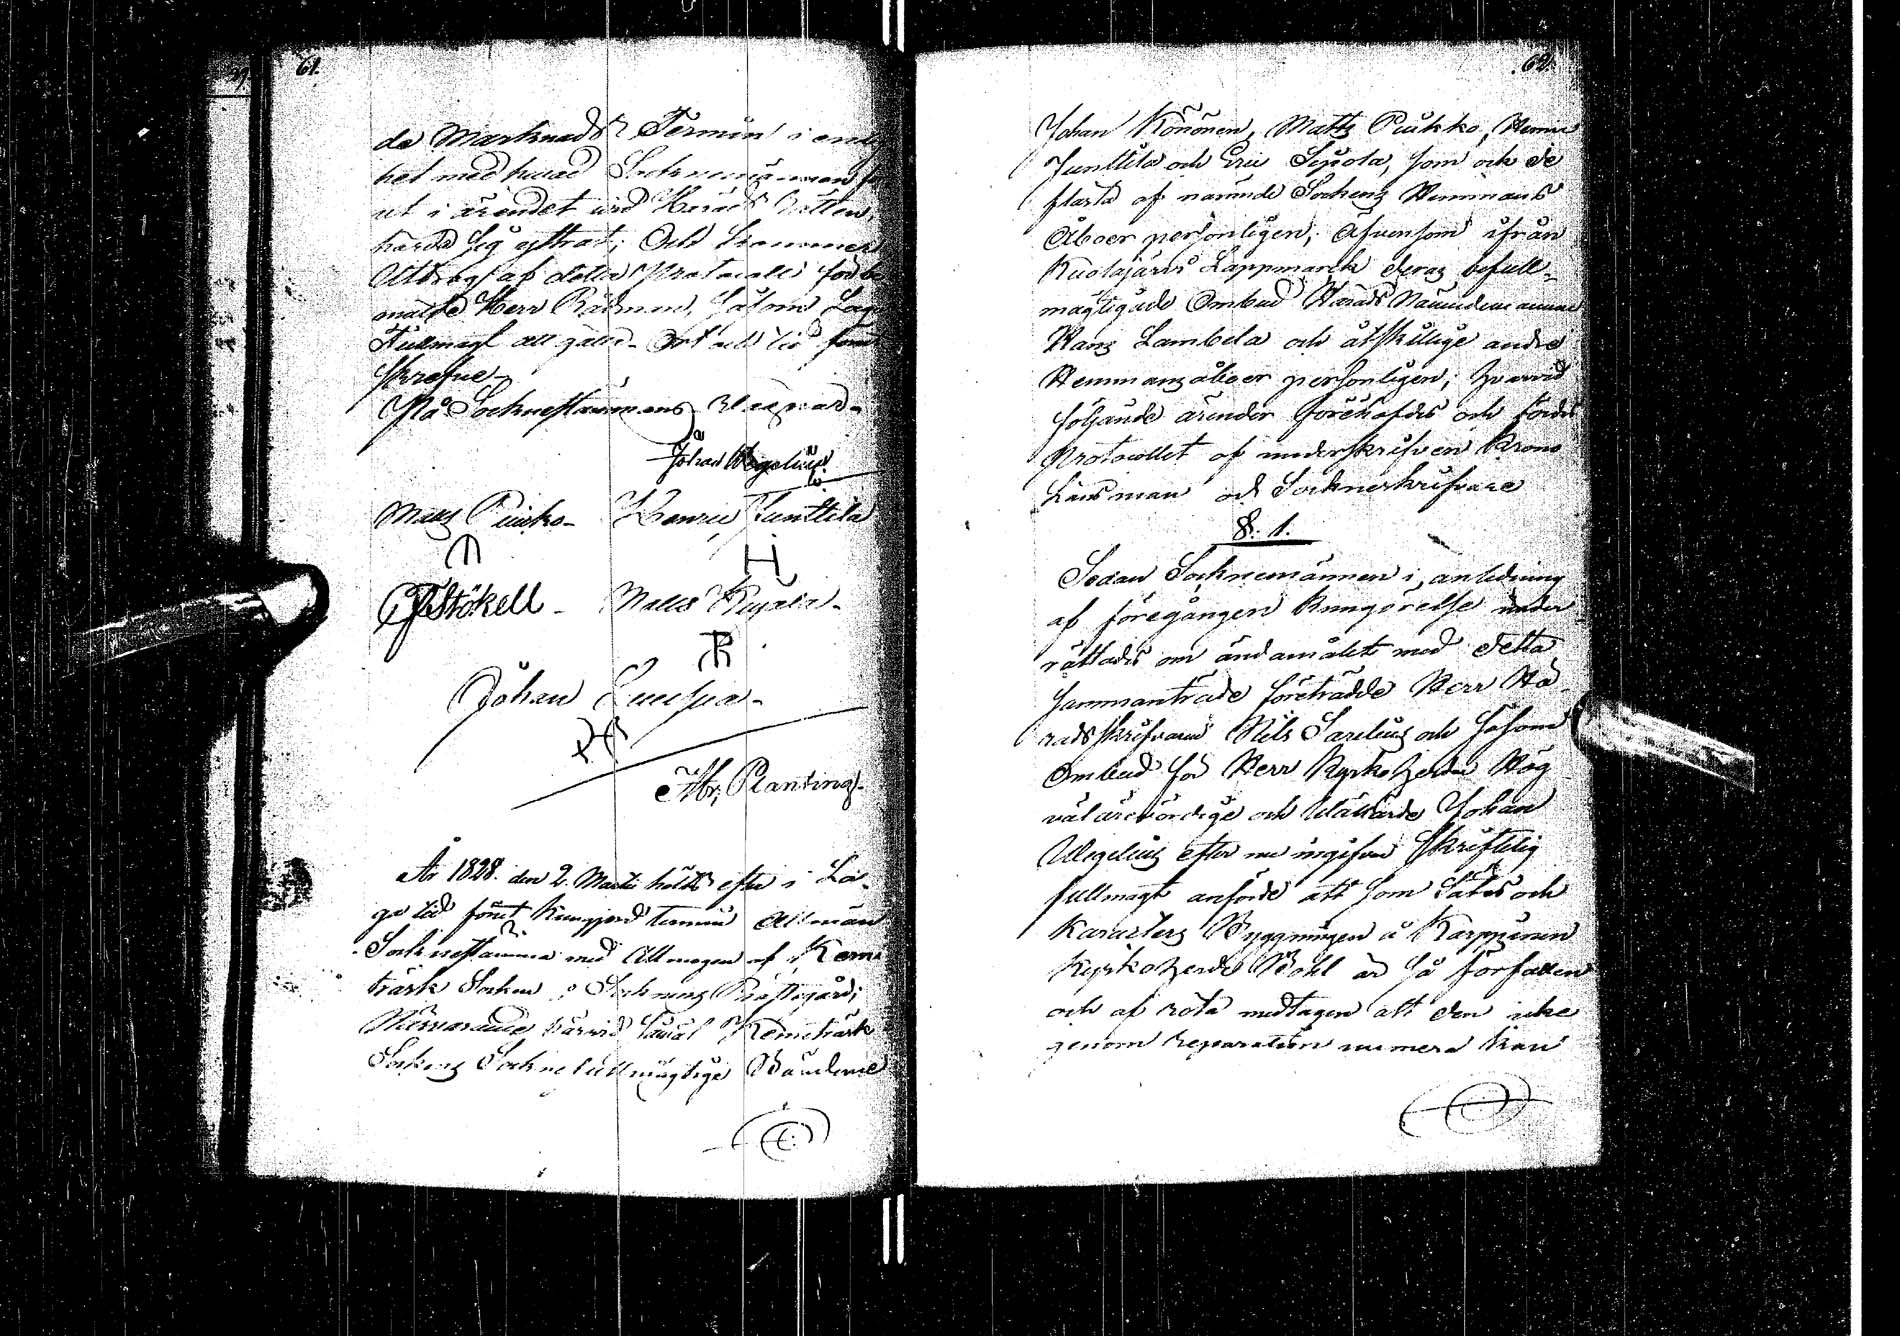 61.
da Marknads Termin i enlig
het med hvad Sockenemännen för
ut i ärendet vid Härads Rätten,
hafva sig yttrat; Och kommer
Utdrag af detta Protocoll för be
mälde Herr Rådman, såsom Lag
Fullmagt att gälla. Ort och tid som
skrefne.
På Socknestämmans Wägnar.
Johan Wegelius
Matts Puikko. Henric Junttila
H
Stökell. Matts Kujala.
Johan
Abr. Planting.
År 1828. den 2. Martii hölts efter i La-
ga tid förut kungjord termin Allmän
Socknestämma med Allmogen af Kemi
träsk Socken i Socknens Prästegård;
Närvarande härvid såväl Kemiträsk
Sockens Sockne fullmägtige Bönderne
62.
Johan Könönen, Matts Puikko, Henric
Junttila och Eric Sipola, som och de
flästa af nämnde Sockens Hemmans
Åboer personligen; Äfvensom ifrån
Kuolajärvi Lappmark deras befull-
mägtigade Ombud Härads Nämndemannen
Hans Lambela och åtskillige andre
Hemmansåboer personligen; hvarvid
följande ärender förehafdes och fördes
Protocollet af underskrifven Krono
Länsman och Socknerskrifvare
§. 1.
Sedan Socknemännen i anledning
af föregången Kungörelse under
rättades om ändamålet med detta
sammanträde förträdde Herr Hä-
radsskrifvaren Nils Sarelius och såsom
Ombud för Herr Kyrkoherden Hög
välärevördige och Vällärde Johan
Wegelius efter nu ingifven skriftelig
fullmagt anförde att som Sätes och
Karacters Byggningen å Karppinen
Kyrkoherde Bohl är så förfallen
och af röta medtagen att den icke
genom Reparation numera kan